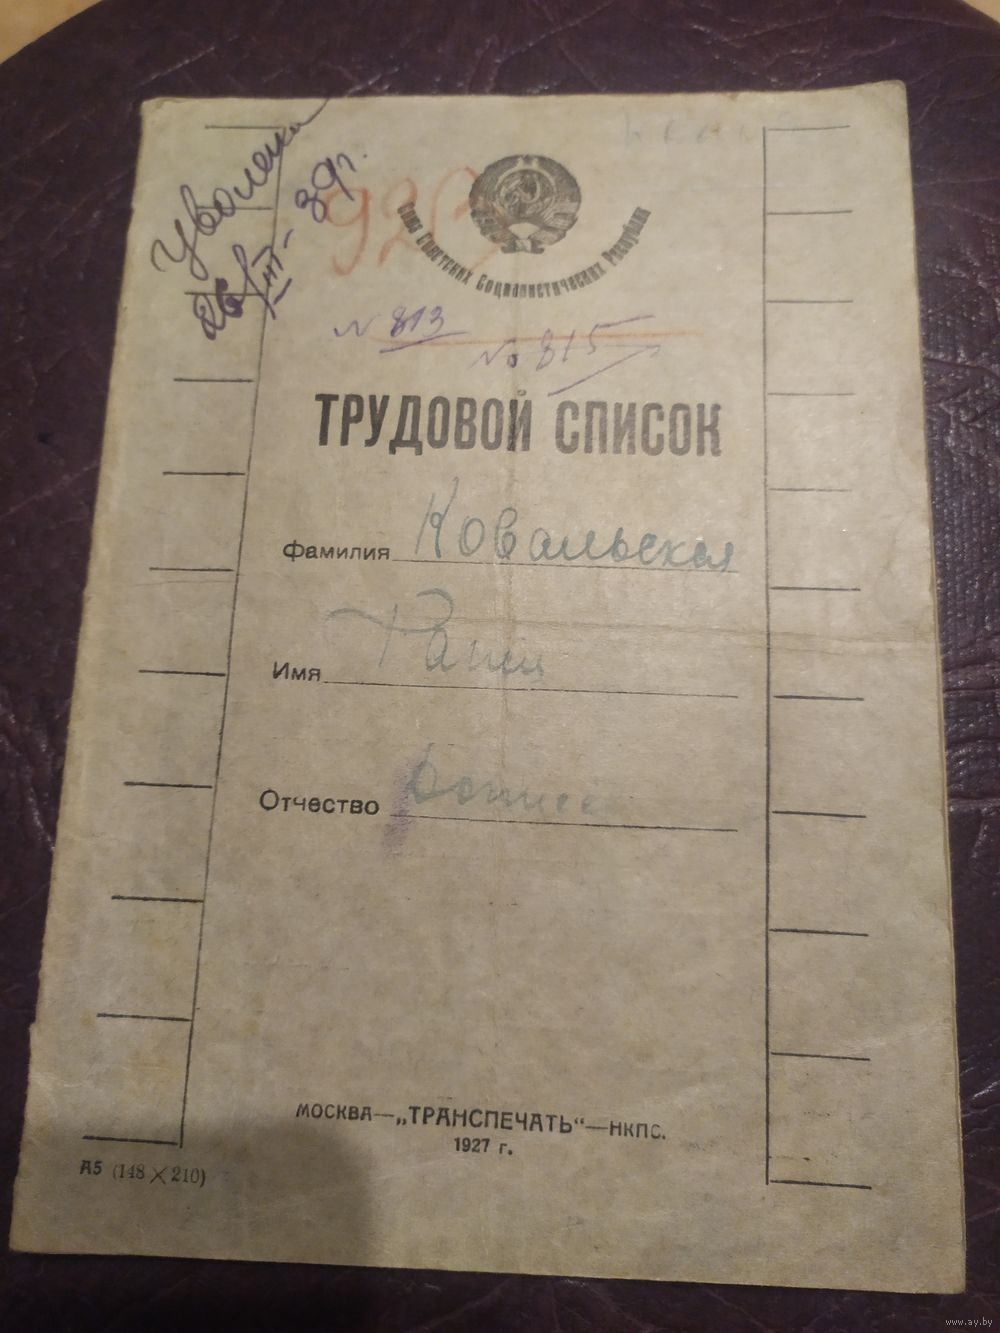 Уволена
39г.
Союз Советских Социалистических Республик
N 813
№ 815
ТРУДОВОЙ СПИСОК
Фамилия Ковальская
Имя
Отчество
МОСКВА—„ТРАНСПЕЧАТЬ“—НКПС.
1927 г.
А5 (148 × 210)
www.ay.by